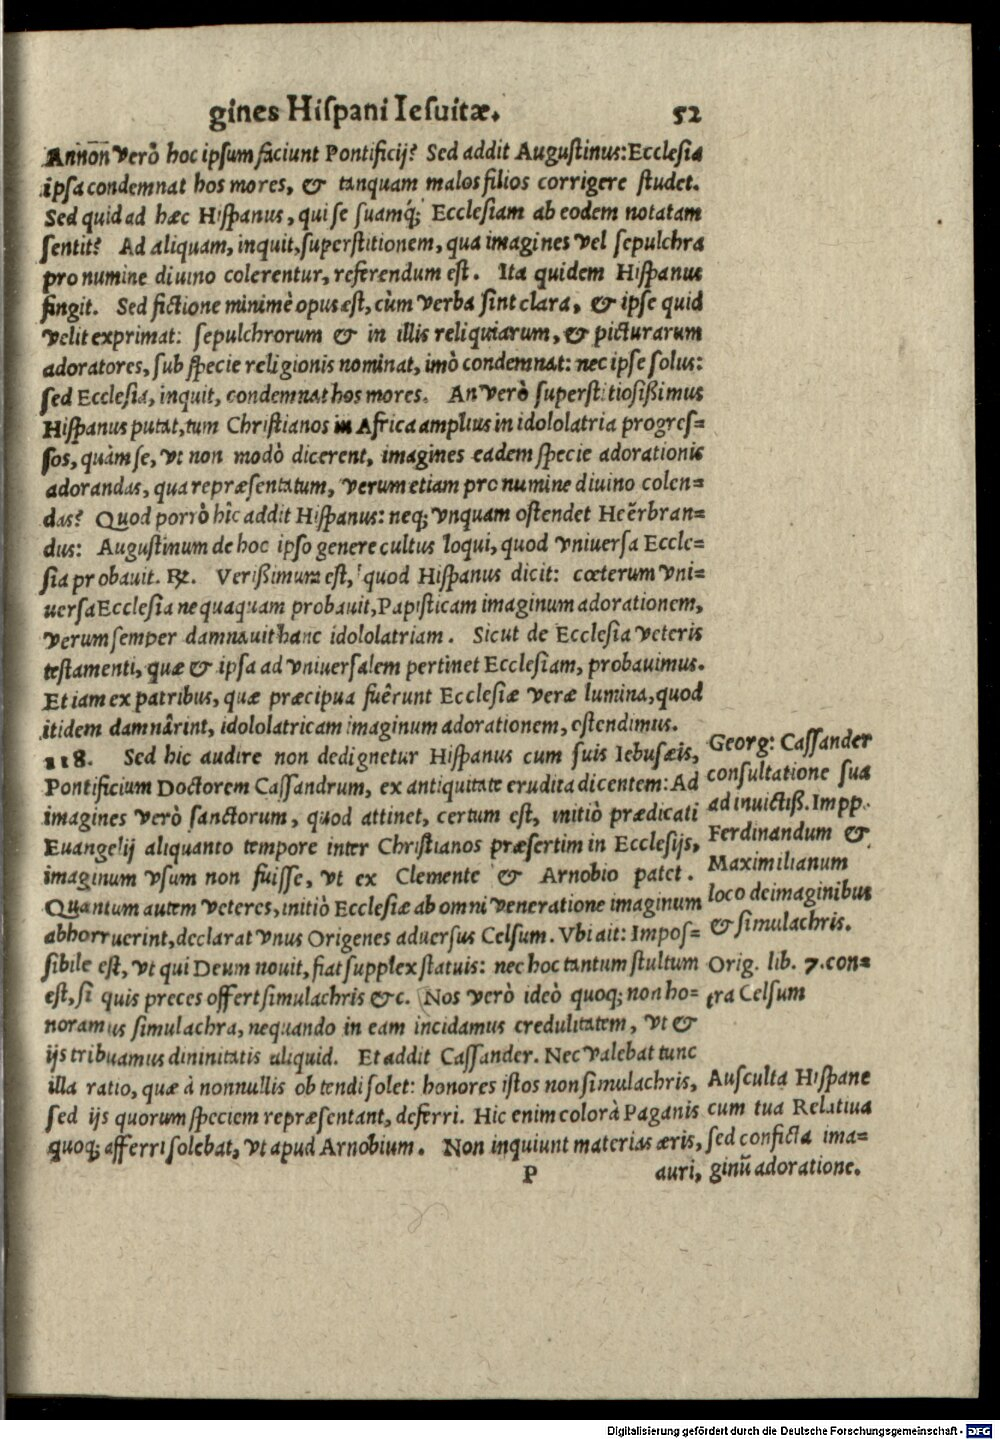 gines Hiſpani Ieſuitæ. 52
Annon̄ verò hoc ipſum faciunt Pontificij? Sed addit Auguſtinus: Eccleſia
ipſa condemnat hos mores, & tanquam malos filios corrigere ſtudet.
Sed quid ad hæc Hiſpanus, qui ſe ſuamq́; Eccleſiam ab eodem notatam
ſentit? Ad aliquam, inquit, ſuperſtitionem, qua imagines vel ſepulchra
pro numine diuino colerentur, referendum eſt. Ita quidem Hiſpanus
fingit. Sed fictione minimè opus eſt, cùm verba ſint clara, & ipſe quid
velit exprimat: ſepulchrorum & in illis reliquiarum, & picturarum
adoratores, ſub ſpecie religionis nominat, imò condemnat: nec ipſe ſolus:
ſed Eccleſia, inquit, condemnat hos mores. An verò ſuperſtitioſißimus
Hiſpanus putat, tum Chriſtianos in Africa amplius in idololatria progreſ=
ſos, quàm ſe, vt non modò dicerent, imagines eadem ſpecie adorationis
adorandas, qua repræſentatum, verum etiam pro numine diuino colen=
das? Quod porrò hîc addit Hiſpanus: neq; vnquam oſtendet Heẽrbran=
dus: Auguſtinum de hoc ipſo genere cultus loqui, quod vniuerſa Eccle=
ſia probauit. ℞. Verißimum eſt, quod Hiſpanus dicit: cœterum vni=
uerſa Eccleſia nequaquam probauit, Papiſticam imaginum adorationem,
verum ſemper damnauit hanc idololatriam. Sicut de Eccleſia veteris
teſtamenti, quæ & ipſa ad vniuerſalem pertinet Eccleſiam, probauimus.
Etiam ex patribus, quæ præcipua fuêrunt Eccleſiæ veræ lumina, quod
itidem damnârint, idololatricam imaginum adorationem, oſtendimus.
118. Sed hic audire non dedignetur Hiſpanus cum ſuis Iebuſæis,
Pontificium Doctorem Caſſandrum, ex antiquitate erudita dicentem: Ad
imagines verò ſanctorum, quod attinet, certum eſt, initiò prædicati
Euangelij aliquanto tempore inter Chriſtianos præſertim in Eccleſijs,
imaginum vſum non fuiſſe, vt ex Clemente & Arnobio patet.
Quantum autem veteres, initiò Eccleſiæ ab omni veneratione imaginum
abhorruerint, declarat vnus Origenes aduerſus Celſum. Vbi ait: Impoſ=
ſibile eſt, vt qui Deum nouit, fiat ſupplex ſtatuis: nec hoc tantum ſtultum
eſt, ſi quis preces offert ſimulachris &c. Nos verò ideò quoq; non ho=
noramus ſimulachra, nequando in eam incidamus credulitatem, vt &
ijs tribuamus dininitatis aliquid. Et addit Caſſander. Nec valebat tunc
illa ratio, quæ à nonnullis obtendi ſolet: honores iſtos non ſimulachris,
ſed ijs quorum ſpeciem repræſentant, deferri. Hic enim color à Paganis
quoq; afferri ſolebat, vt apud Arnobium. Non inquiunt materias æris,
P auri,
Georg: Caſſander
conſultatione ſua
ad inuictiß. Impp.
Ferdinandum &
Maximilianum
loco de imaginibus
& ſimulachris.
Orig. lib. 7. con=
tra Celſum
Auſculta Hiſpane
cum tua Relatiua
ſed conficta ima=
ginū adoratione.
Digitalisierung gefördert durch die Deutsche Forschungsgemeinschaft - DFG